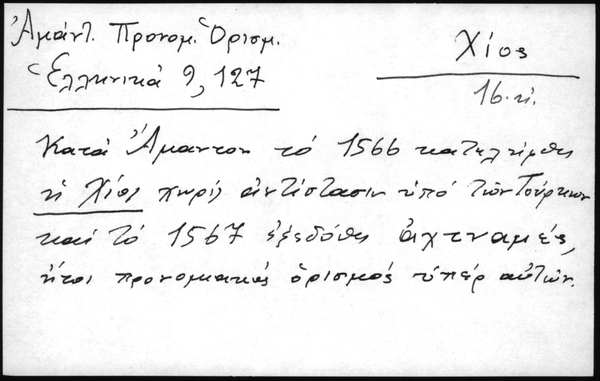 Ἀμάντ. Προνομ. Ὁρισμ.
Ἑλληνικά 9, 127
Χίος
16. αἰ.
Κατά Ἄμαντον τό 1566 κατελήφθη
ἡ Χίος χωρίς ἀντίστασιν ὑπό τῶν Τούρκων
καί τό 1567 ἐξεδόθη ἀχτναμές,
ἤτοι προνομιακός ὁρισμός ὑπέρ αὐτῶν.